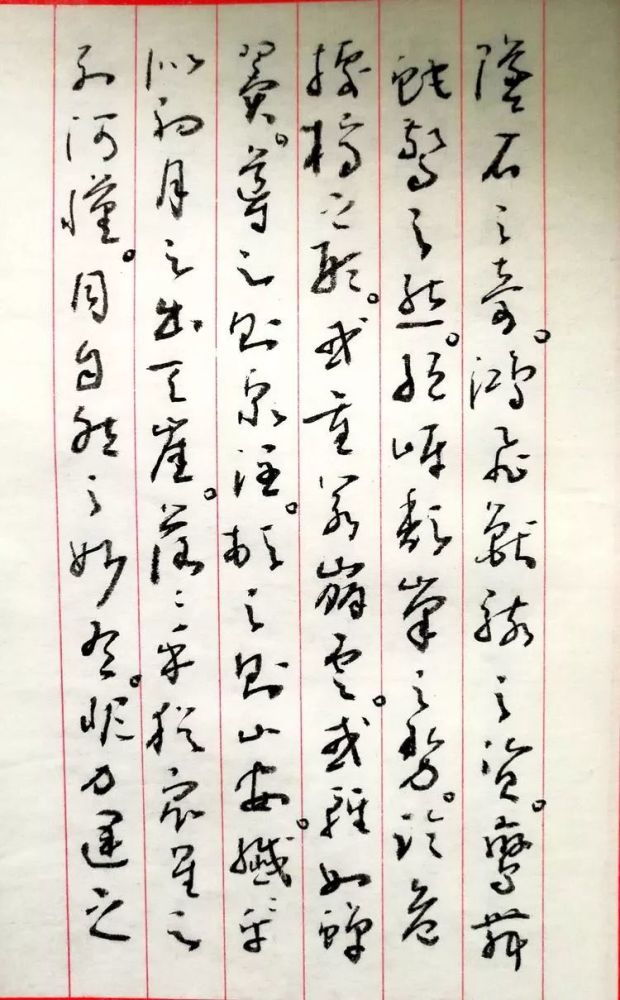 墜石之奇。鴻飛獸駭之資。鸞舞
蛇驚之態。絕岸頹峯之勢。臨危
據槁之形。或重若崩雲。或輕如蟬
翼。導之則泉注。頓之則山安。纖〻乎
似初月之出天崖。落〻乎猶衆星之
列河漢。同自然之妙有。非力運之